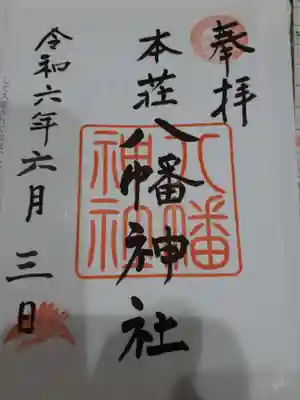 奉拝
本荘八幡神社
八幡神社
令和六年六月三日